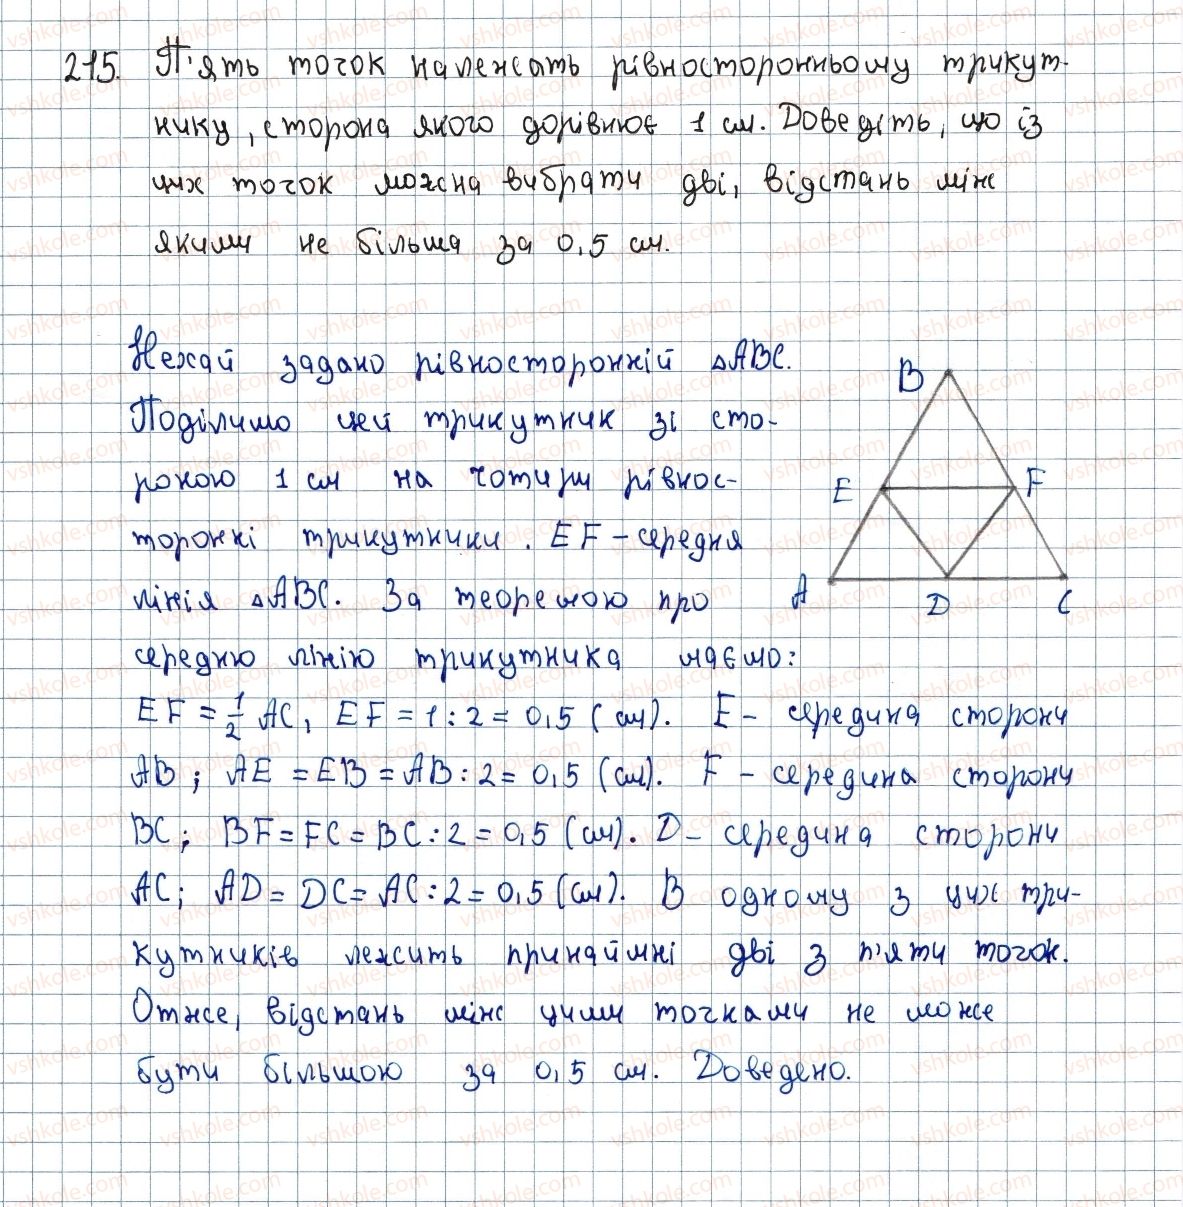 215. П'ять точок належать рівносторонньому трикут-
нику, сторона якого дорівнює 1 см. Доведіть, що із
цих точок можна вибрати дві, відстань між
якими не більша за 0,5 см.
Нехай задано рівносторонній △ABC.
Поділимо цей трикутник зі сто-
роною 1 см на чотири рівнос-
торонні трикутники. EF – середня
лінія △ABC. За теоремою про
середню лінію трикутника маємо:
B
E
F
A
D
C
EF = 1/2 AC, EF = 1 : 2 = 0,5 (см). E – середина сторони
AB; AE = EB = AB : 2 = 0,5 (см). F – середина сторони
BC; BF = FC = BC : 2 = 0,5 (см). D – середина сторони
AC; AD = DC = AC : 2 = 0,5 (см). В одному з цих три-
кутників лежить принаймні дві з п'яти точок.
Отже, відстань між цими точками не може
бути більшою за 0,5 см. Доведено.
vshkole.com